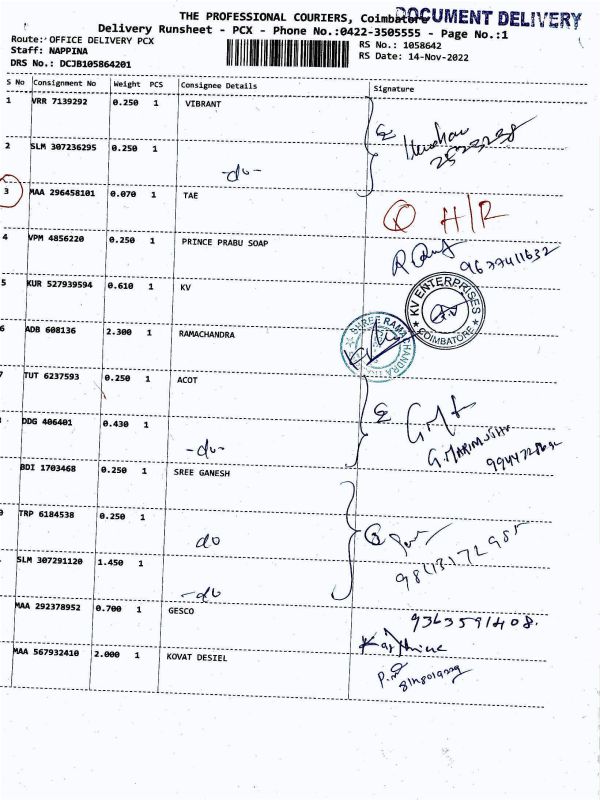 THE PROFESSIONAL COURIERS, Coimbatore
DOCUMENT DELIVERY
Delivery Runsheet - PCX - Phone No.:0422-3505555 - Page No.:1
Route: OFFICE DELIVERY PCX
RS No.: 1058642
Staff: NAPPINA
RS Date: 14-Nov-2022
DRS No.: DCJB105864201
S No Consignment No Weight PCS Consignee Details Signature
1 VRR 7139292 0.250 1 VIBRANT
2 SLM 307236295 0.250 1
-do-
3 MAA 296458101 0.070 1 TAE
H/R
4 VPM 4856220 0.250 1 PRINCE PRABU SOAP
9677411632
5 KUR 527939594 0.610 1 KV
KV ENTERPRISES
COIMBATORE
6 ADB 608136 2.300 1 RAMACHANDRA
SHREE RAMACHANDRA
TUT 6237593 0.250 1 ACOT
DDG 406401 0.430 1
-do-
G. MARIMUTHU
BDI 1703468 0.250 1 SREE GANESH
TRP 6184538 0.250 1
do
SLM 307291120 1.450 1
-do
MAA 292378952 0.700 1 GESCO
9363591408.
MAA 567932410 2.000 1 KOVAT DESIEL